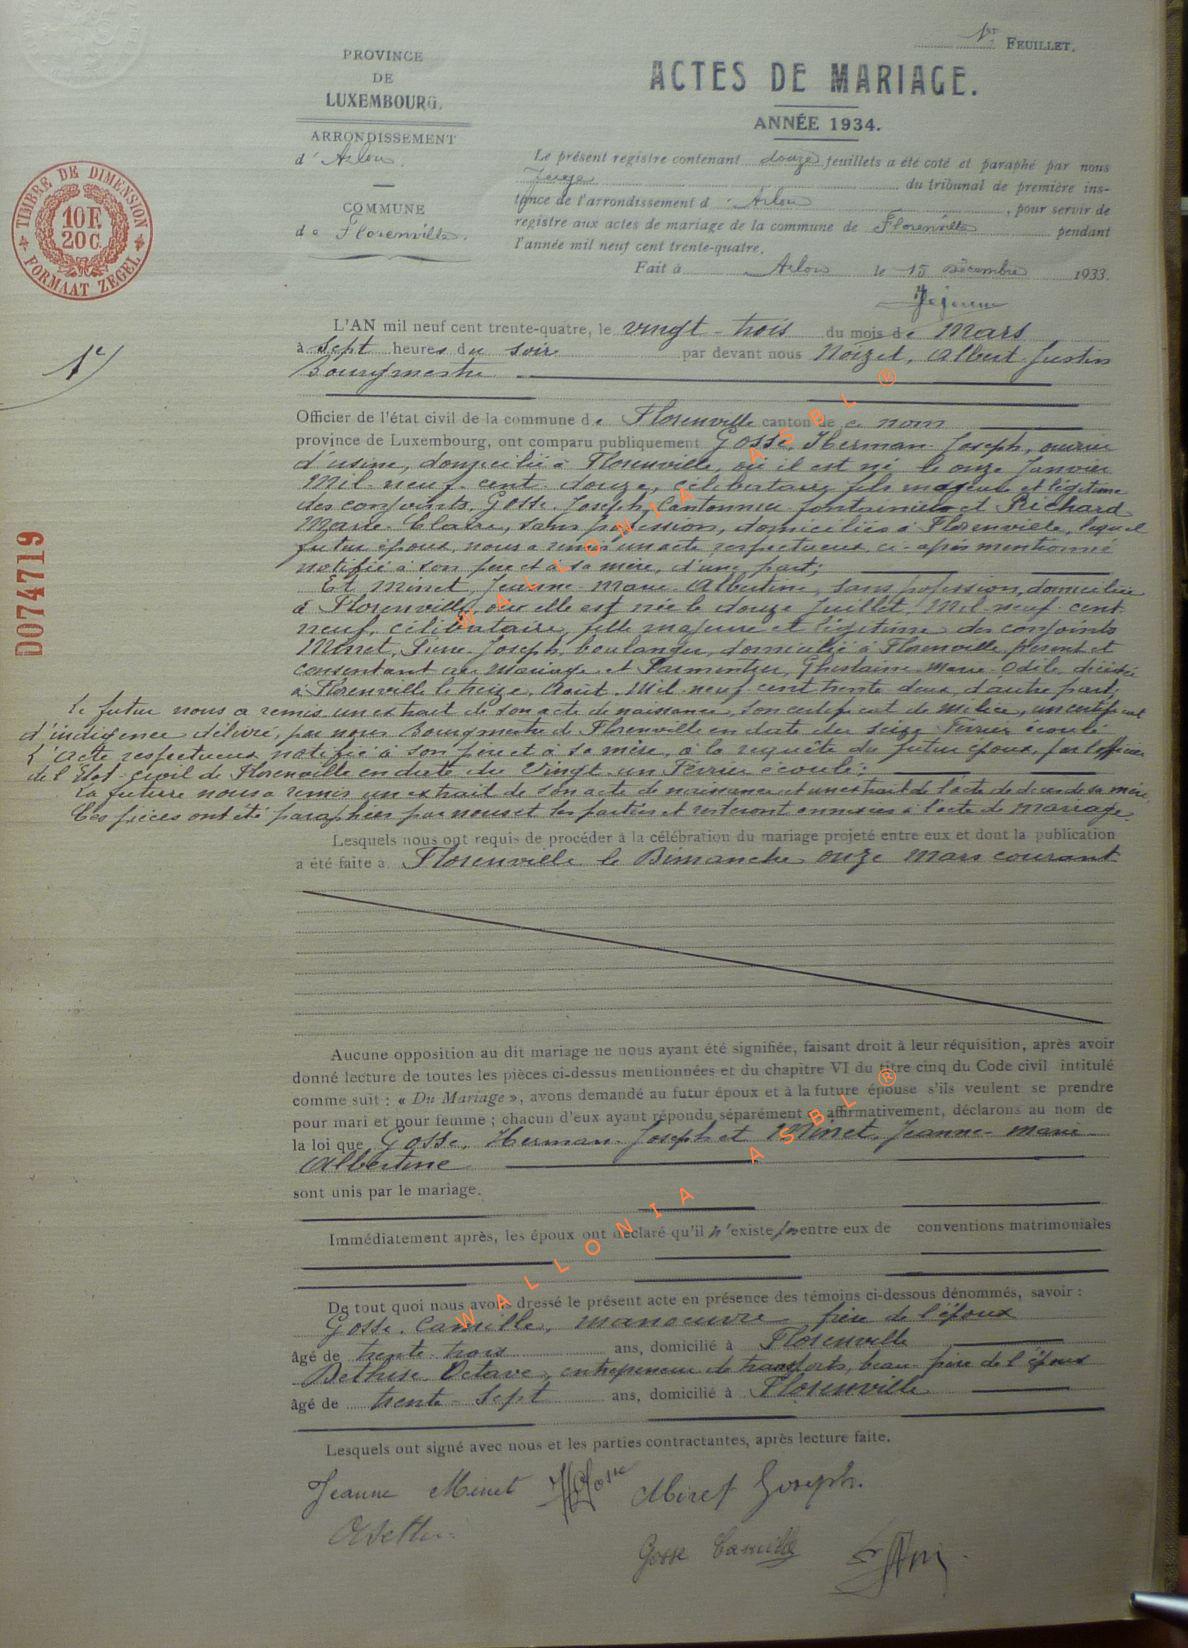 1er FEUILLET.
PROVINCE
DE
LUXEMBOURG.
ARRONDISSEMENT
d' Arlon.
COMMUNE
de Florenville.
TIMBRE DE DIMENSION
10 F.
20 C.
FORMAAT ZEGEL
D074719
ACTES DE MARIAGE.
ANNÉE 1934.
Le présent registre contenant douze feuillets a été coté et paraphé par nous
Juge du tribunal de première ins-
tance de l'arrondissement d' Arlon, pour servir de
registre aux actes de mariage de la commune de Florenville pendant
l'année mil neuf cent trente-quatre.
Fait à Arlon le 15 Décembre 1933.
1er
L'AN mil neuf cent trente-quatre, le vingt-trois du mois de Mars
à sept heures du soir par devant nous Noizet, Albert Justin
Bourgmestre
Officier de l'état civil de la commune de Florenville canton de ce nom
province de Luxembourg, ont comparu publiquement Gosse, Herman-Joseph, ouvrier
d'usine, domicilié à Florenville, où il est né le onze Janvier
Mil-neuf-cent-douze, célibataire, fils majeur et légitime
des conjoints Gosse, Joseph, Cantonnier fontainier et Richard
Marie-Claire, sans profession, domiciliés à Florenville, lequel
futur époux, nous a remis un acte respectueux ci-après mentionné
notifié à son père et à sa mère, d'une part;
Et Minet, Jeanne-Marie-Albertine, sans profession, domiciliée
à Florenville, où elle est née le douze Juillet, Mil-neuf-cent
neuf, célibataire, fille majeure et légitime des conjoints
Minet, Joseph, boulanger, domicilié à Florenville, présent et
consentant au mariage et Parmentier, Ghislaine-Marie-Odile, décédée
à Florenville le treize, Août, Mil-neuf-cent trente-deux, d'autre part;
Le futur nous a remis un extrait de son acte de naissance, son certificat de milice, un certificat
d'indigence délivré, par nous Bourgmestre de Florenville en date du seize Février écoulé
L'acte respectueux notifié à son père et à sa mère, à la requête du futur époux, par l'officier
de l'État-civil de Florenville en date du Vingt-un Février écoulé;
La future nous a remis un extrait de son acte de naissance et un extrait de l'acte de décès de sa mère.
Ces pièces ont été paraphées par nous et les parties et resteront annexées à l'acte de Mariage.
Lesquels nous ont requis de procéder à la célébration du mariage projeté entre eux et dont la publication
a été faite à Florenville le Dimanche onze Mars courant
Aucune opposition au dit mariage ne nous ayant été signifiée, faisant droit à leur réquisition, après avoir
donné lecture de toutes les pièces ci-dessus mentionnées et du chapitre VI du titre cinq du Code civil intitulé
comme suit : « Du Mariage », avons demandé au futur époux et à la future épouse s'ils veulent se prendre
pour mari et pour femme ; chacun d'eux ayant répondu séparément et affirmativement, déclarons au nom de
la loi que Gosse, Herman-Joseph et Minet, Jeanne-Marie-
Albertine
sont unis par le mariage.
Immédiatement après, les époux ont déclaré qu'il n'existe pas entre eux de conventions matrimoniales
De tout quoi nous avons dressé le présent acte en présence des témoins ci-dessous dénommés, savoir :
Gosse, Camille, manoeuvre, frère de l'époux
âgé de trente-trois ans, domicilié à Florenville
Bethise Octave, entrepreneur de transports, beau-frère de l'époux
âgé de trente-sept ans, domicilié à Florenville
Lesquels ont signé avec nous et les parties contractantes, après lecture faite.
Jeanne Minet HGosse Minet Joseph.
Gosse Camille
WALLONIA ASBL ®
WALLONIA ASBL ®